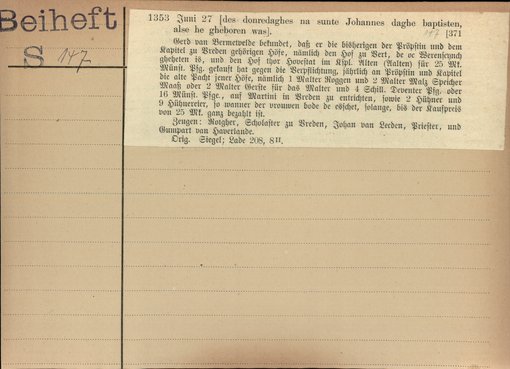 Beiheft
S 147
1353 Juni 27 [des donredaghes na sunte Johannes daghe baptisten,
alse he gheboren was]. 147 [371
Gerd van Bermetvelde bekundet, daß er die bisherigen der Pröpstin und dem
Kapitel zu Vreden gehörigen Höfe, nämlich den Hof zu Bert, de oc Berensynch
gheheten is, und den Hof thor Hovestat im Kspl. Alten (Aalten) für 25 Mk.
Münst. Pfg. gekauft hat gegen die Verpflichtung, jährlich an Pröpstin und Kapitel
die alte Pacht jener Höfe, nämlich 1 Malter Roggen und 2 Malter Malz Speicher
Maaß oder 2 Malter Gerste für das Malter und 4 Schill. Deventer Pfg. oder
16 Münst. Pfge., auf Martini in Vreden zu entrichten, sowie 2 Hühner und
9 Hühnereier, so wanner der vrouwen bode de eschet, solange, bis der Kaufpreis
von 25 Mk. ganz bezahlt ist.
Zeugen: Rotgher, Scholaster zu Vreden, Johan van Leeden, Priester, und
Gumpart van Haverlande.
Orig. Siegel; Lade 208, 8 II.